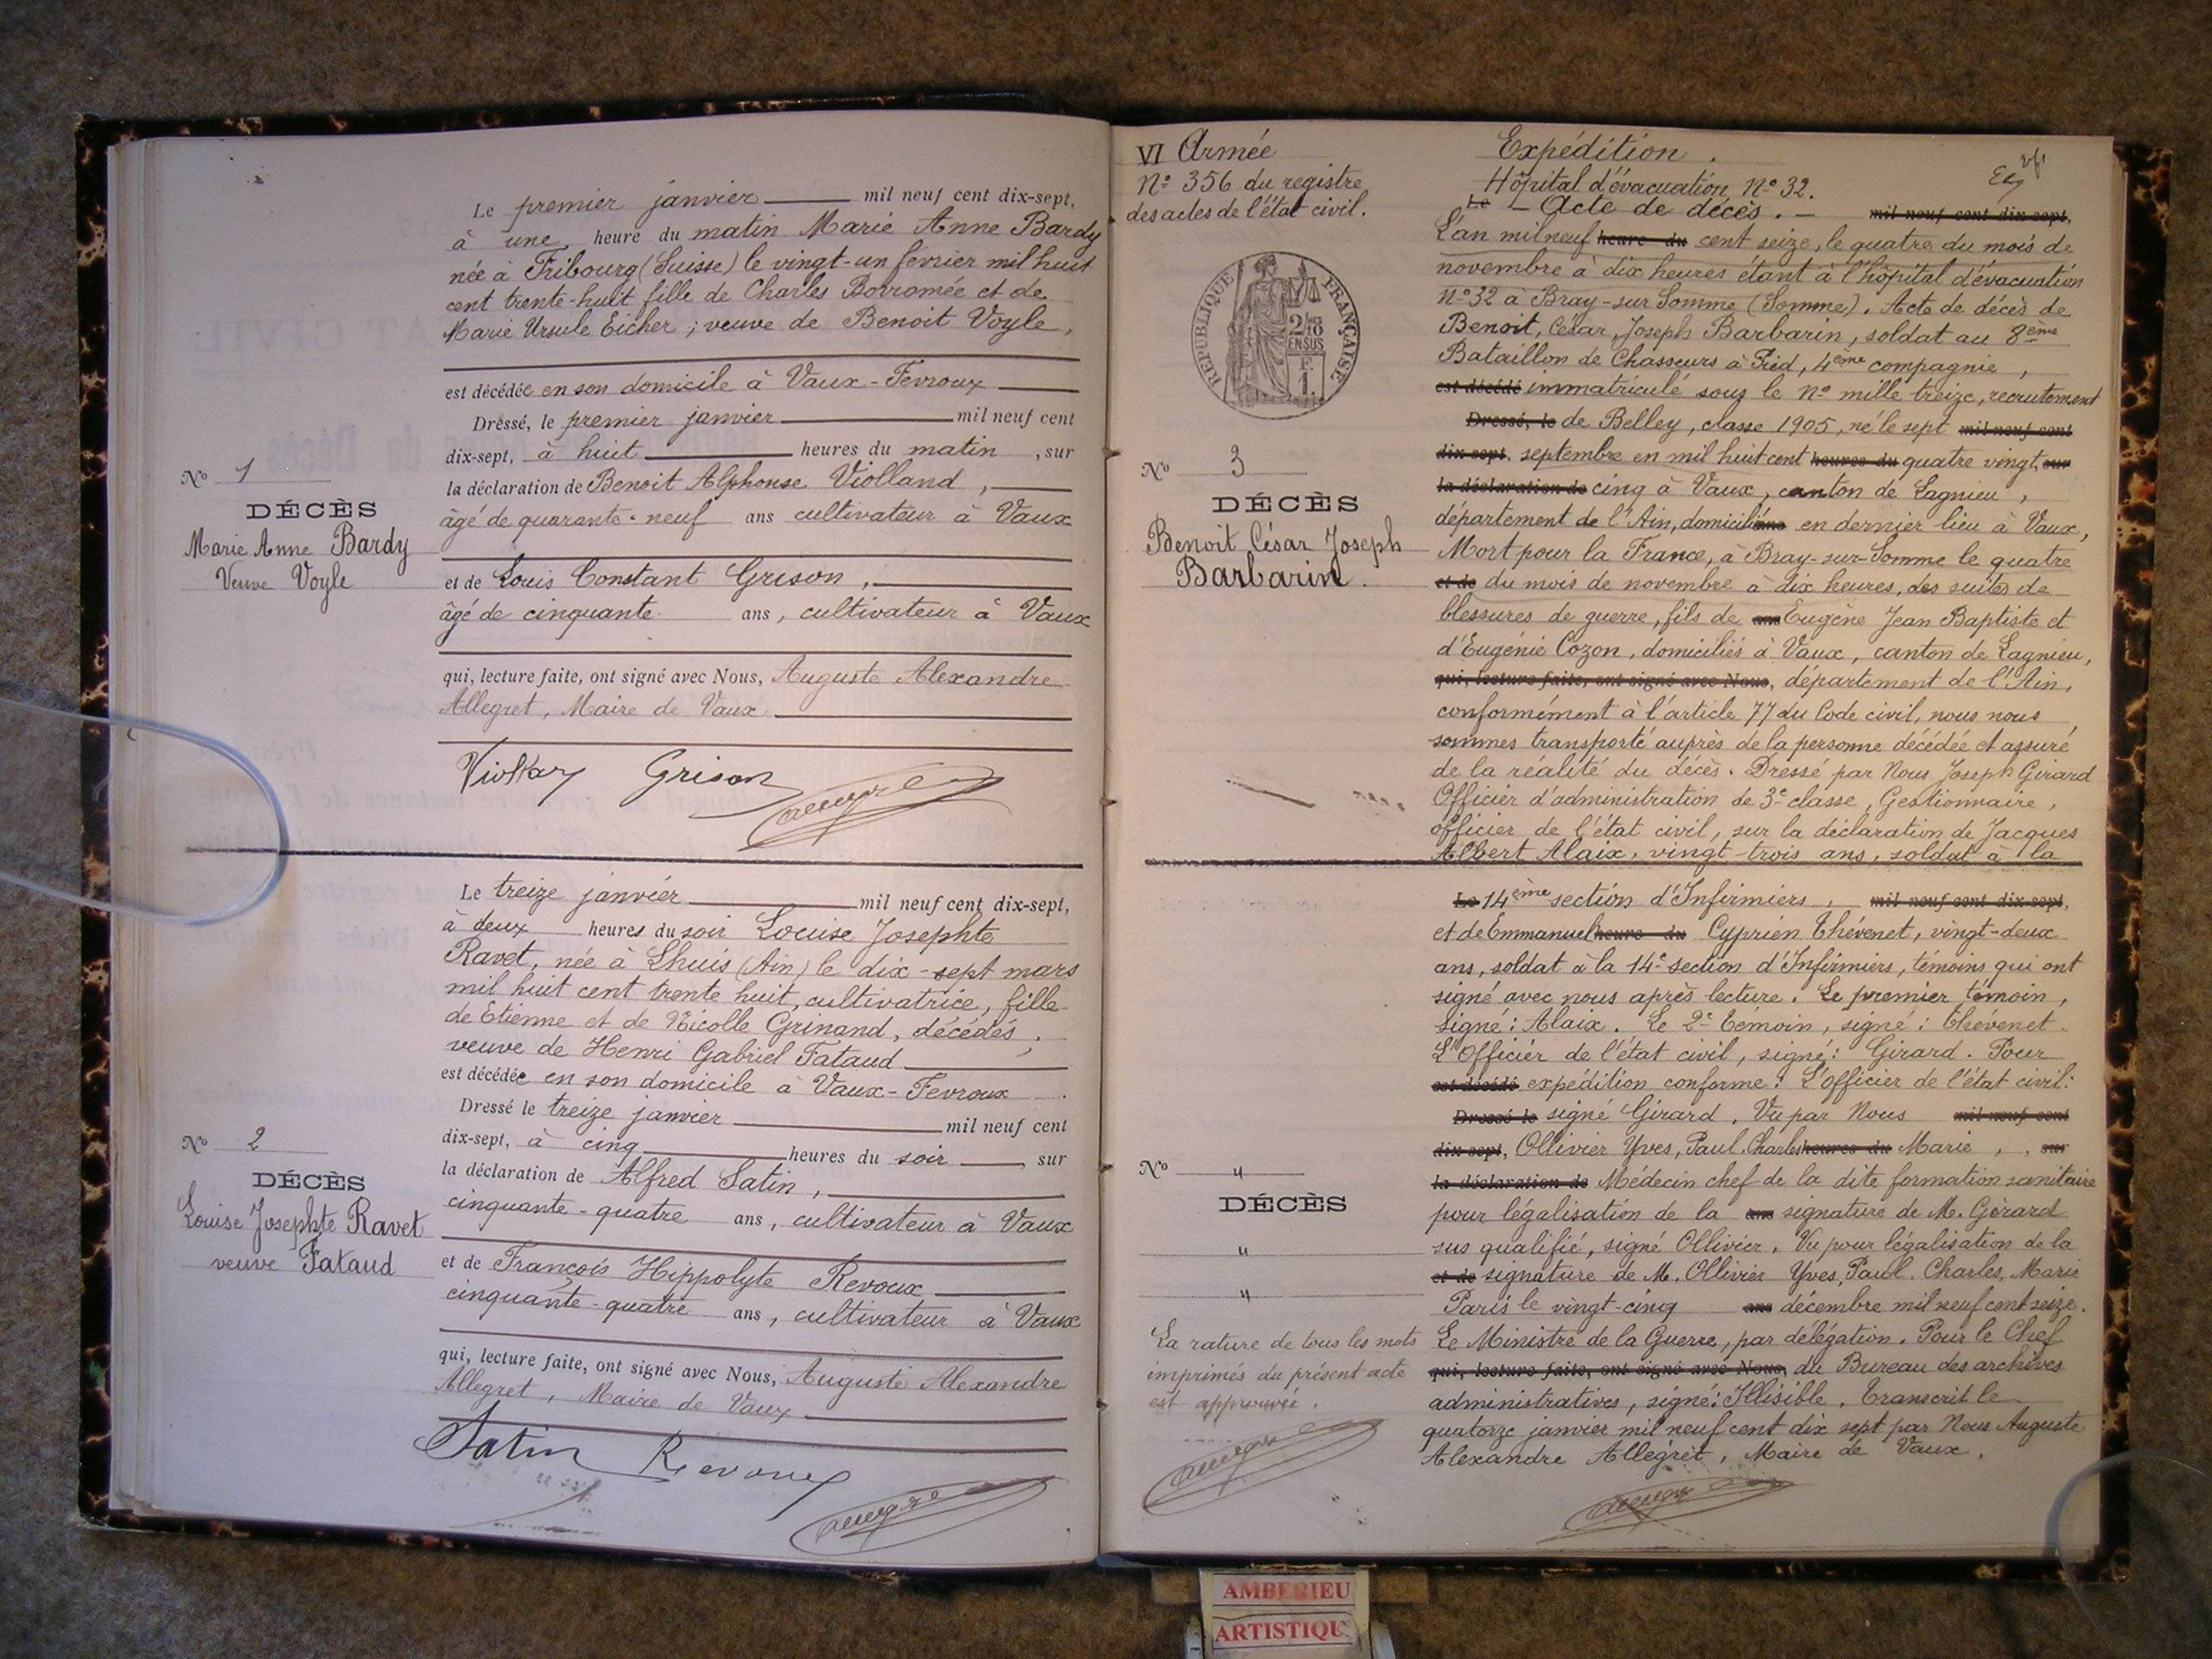 Le premier janvier mil neuf cent dix-sept,
à une heure du matin Marie Anne Bardy
née à Fribourg (Suisse) le vingt-un fevrier mil huit
cent trente-huit fille de Charles Borromée et de
Marie Ursule Eicher ; veuve de Benoit Voyle,
est décédée en son domicile à Vaux-Fevroux
Dressé, le premier janvier mil neuf cent
dix-sept, à huit heures du matin , sur
la déclaration de Benoit Alphonse Violland ,
âgé de quarante-neuf ans cultivateur à Vaux
et de Louis Constant Grison ,
âgé de cinquante ans, cultivateur à Vaux
qui, lecture faite, ont signé avec Nous, Auguste Alexandre
Allegret, Maire de Vaux
Nº 1
DÉCÈS
Marie Anne Bardy
Veuve Voyle
Grison
Le treize janvier mil neuf cent dix-sept,
à deux heures du soir Louise Josephte
Ravet, née à Lhuis (Ain) le dix-sept mars
mil huit cent trente huit, cultivatrice, fille
de Etienne et de Nicolle Grinand, décédés,
veuve de Henri Gabriel Fataud
est décédée en son domicile à Vaux-Fevroux
Dressé le treize janvier mil neuf cent
dix-sept, à cinq heures du soir , sur
la déclaration de Alfred Satin ,
cinquante-quatre ans, cultivateur à Vaux
et de François Hippolyte Revoux
cinquante-quatre ans, cultivateur à Vaux
qui, lecture faite, ont signé avec Nous, Auguste Alexandre
Allegret, Maire de Vaux
Nº 2
DÉCÈS
Louise Josephte Ravet
veuve Fataud
Satin Revoux
VI Armée
Nº 356 du registre
des actes de l'état civil.
RÉPUBLIQUE FRANÇAISE
2/10 EN SUS
F. 1.
Nº 3
DÉCÈS
Benoit César Joseph
Barbarin.
Expédition.
Hôpital d'évacuation Nº 32.
Le – Acte de décès. – mil neuf cent dix-sept,
L'an mil neuf heure du cent seize, le quatre du mois de
novembre à dix heures étant à l'hôpital d'évacuation
Nº 32 à Bray-sur-Somme (Somme). Acte de décès de
Benoit, César, Joseph Barbarin, soldat au 8ème
Bataillon de Chasseurs à Pied, 4ème compagnie,
est décédé immatriculé sous le Nº mille treize, recrutement
Dressé, le de Belley, classe 1905, né le sept mil neuf cent
dix-sept, septembre en mil huit cent heures du quatre vingt, sur
la déclaration de cinq à Vaux, canton de Lagnieu,
département de l'Ain, domicilié ans en dernier lieu à Vaux,
Mort pour la France, à Bray-sur-Somme le quatre
et de du mois de novembre à dix heures, des suites de
blessures de guerre, fils de ans Eugène Jean Baptiste et
d'Eugénie Cozon, domiciliés à Vaux, canton de Lagnieu,
qui, lecture faite, ont signé avec Nous, département de l'Ain,
conformément à l'article 77 du Code civil, nous nous
sommes transporté auprès de la personne décédée et assuré
de la réalité du décès. Dressé par Nous Joseph Girard
Officier d'administration de 3e classe, Gestionnaire,
officier de l'état civil, sur la déclaration de Jacques
Albert Alaix, vingt-trois ans, soldat à la
Le 14ème section d'Infirmiers, mil neuf cent dix-sept,
et de Emmanuel heure du Cyprien Thévenet, vingt-deux
ans, soldat à la 14e section d'Infirmiers, témoins qui ont
signé avec nous après lecture. Le premier témoin,
signé: Alaix. Le 2e témoin, signé: Thévenet.
L'Officier de l'état civil, signé: Girard. Pour
est décédé expédition conforme: L'officier de l'état civil:
Dressé le signé Girard. Vu par Nous mil neuf cent
dix-sept, Ollivier Yves, Paul, Charles heures du Marie, , sur
la déclaration de Médecin chef de la dite formation sanitaire
pour légalisation de la ans signature de M. Girard
sus qualifié, signé Ollivier. Vu pour légalisation de la
et de signature de M. Ollivier Yves, Paul, Charles, Marie
Paris le vingt-cinq ans décembre mil neuf cent seize.
Le Ministre de la Guerre, par délégation. Pour le Chef
qui, lecture faite, ont signé avec Nous, du Bureau des archives
administratives, signé: Illisible. Transcrit le
quatorze janvier mil neuf cent dix sept par Nous Auguste
Alexandre Allegret, Maire de Vaux.
Nº "
DÉCÈS
"
"
La rature de tous les mots
imprimés du présent acte
est approuvée.
AMBERIEU
ARTISTIQU